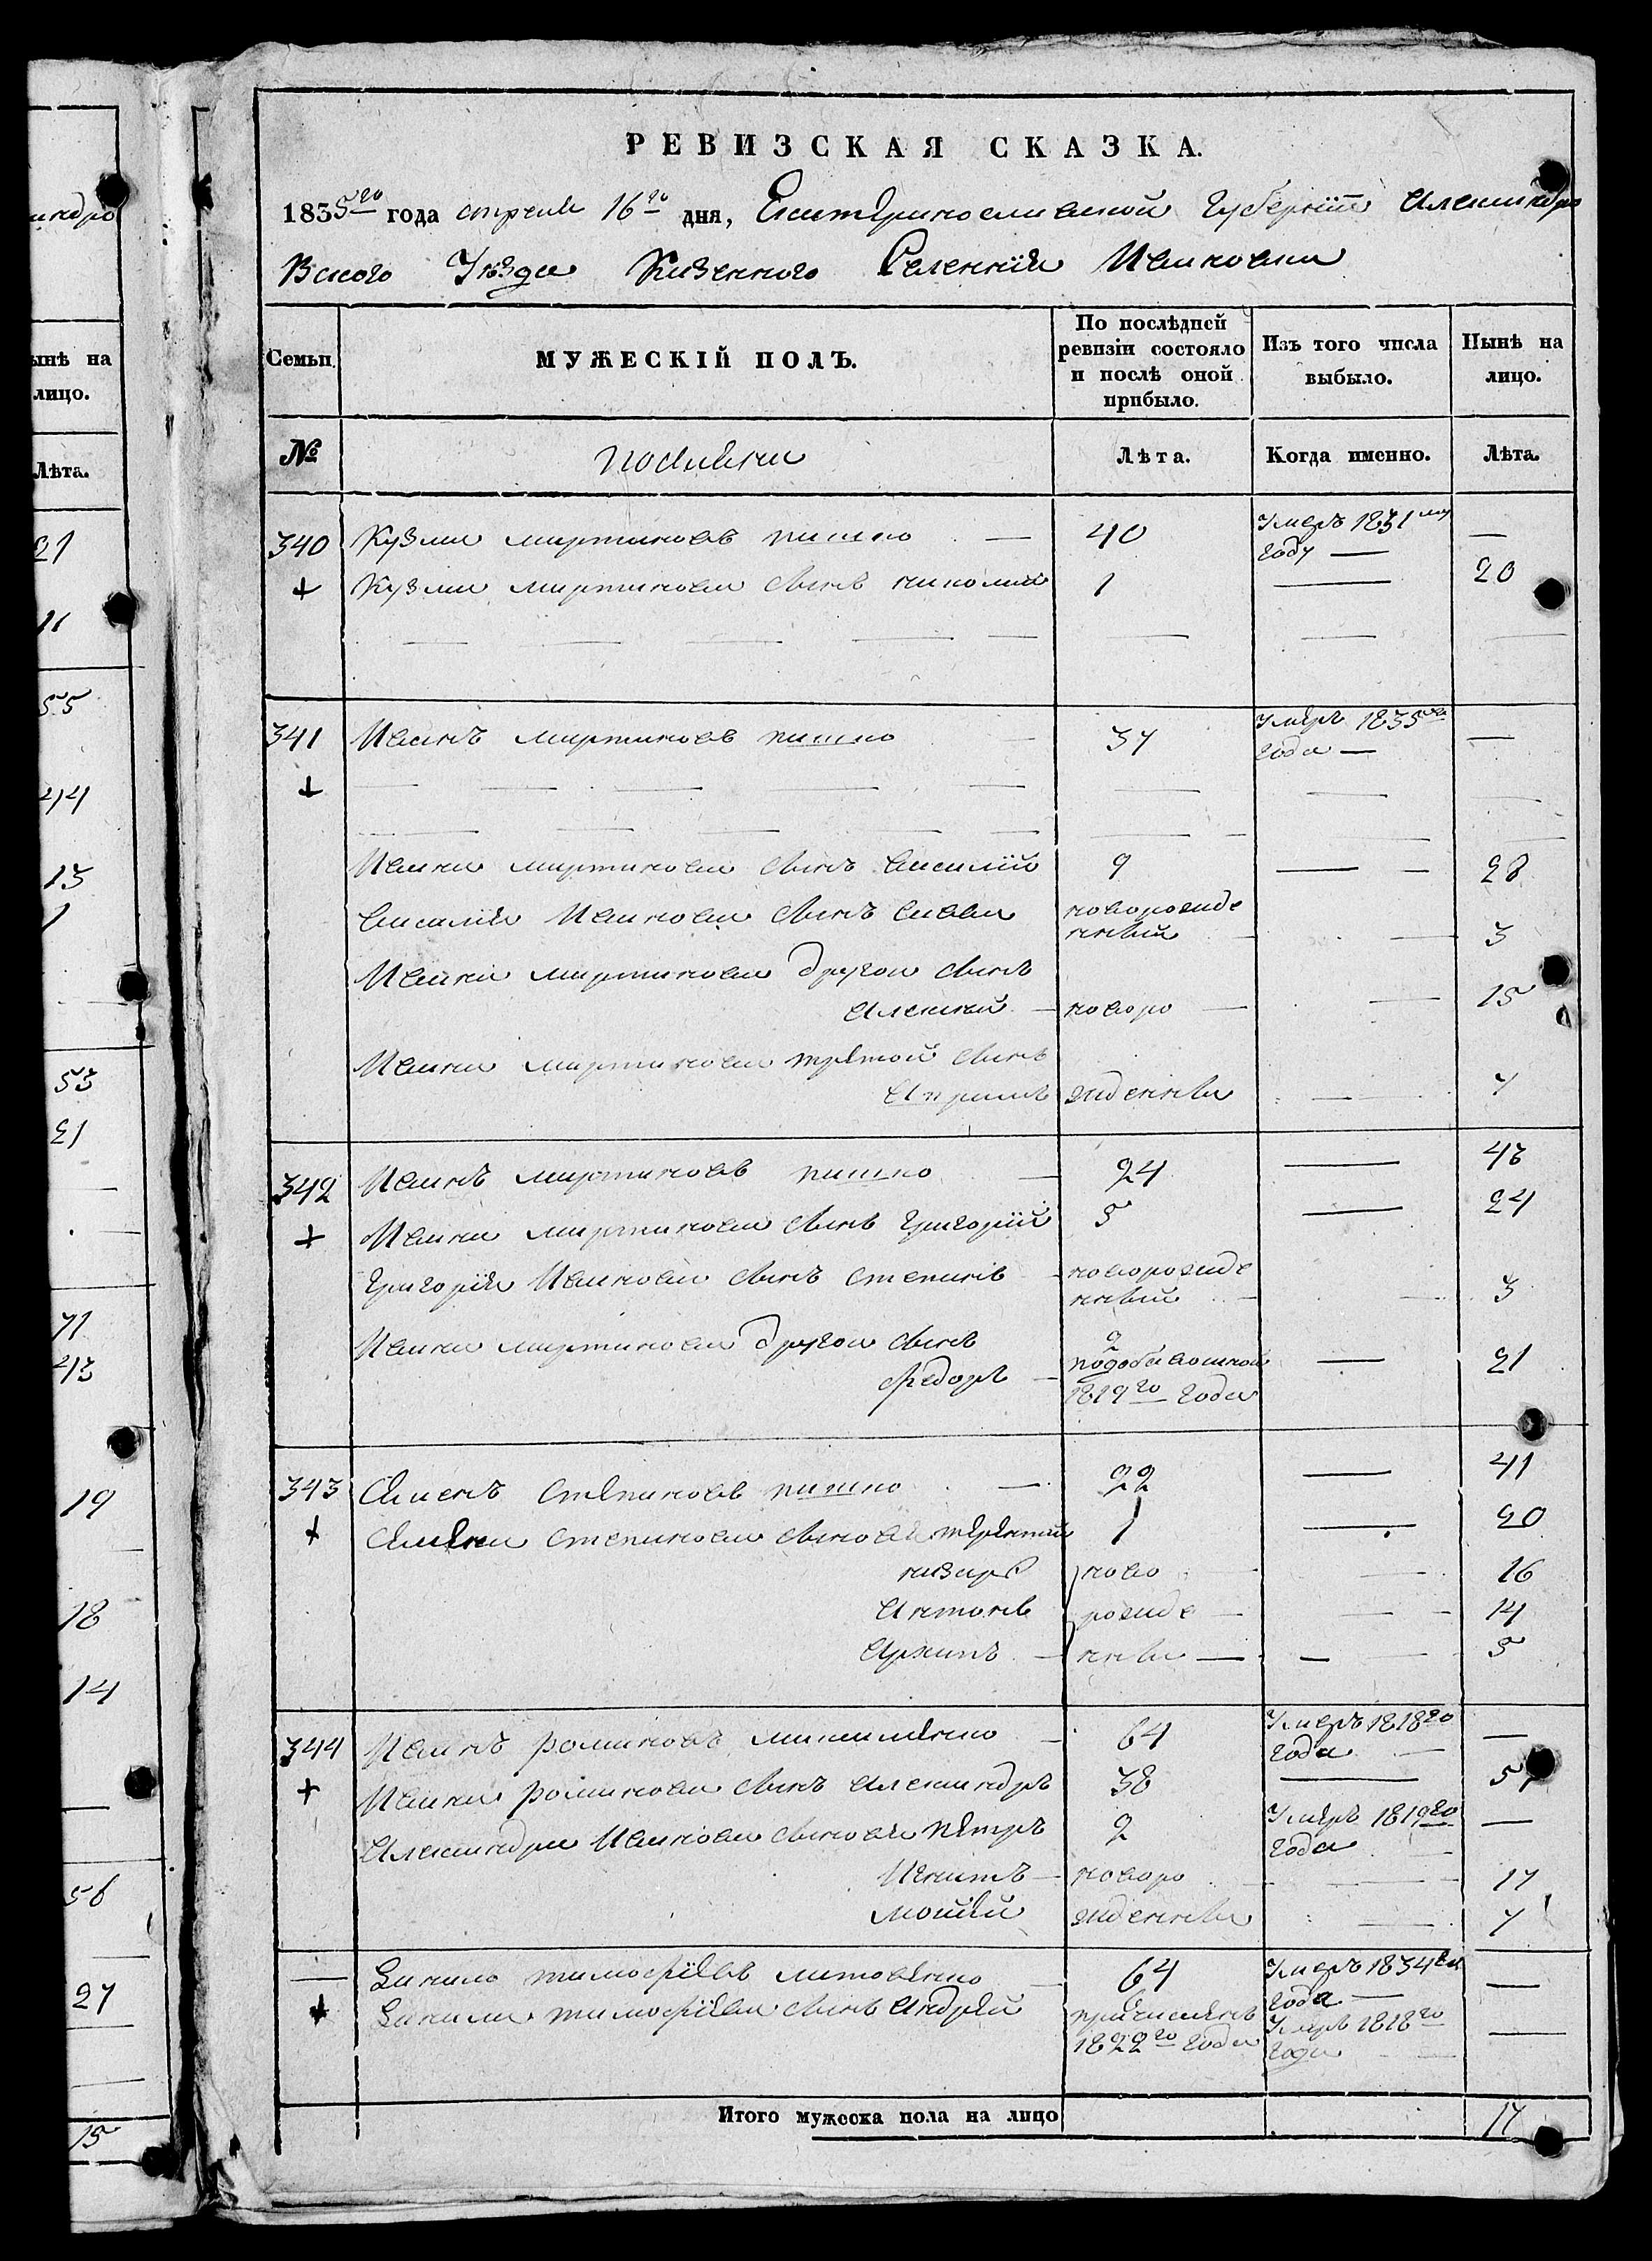 индро
РЕВИЗСКАЯ СКАЗКА.
1835го года апреля 16го дня, Екатериносливской Губернии Александро
вского Уезда Казенного Селения Ивановки
ынѣ на
лицо.
Семьи.
МУЖЕСКІЙ ПОЛЪ.
По послѣдней
ревизіи состояло
и послѣ оной
прибыло.
Изъ того числа
выбыло.
Нынѣ на
лицо.
Лѣта.
№
Лѣта.
Когда именно.
Лѣта.
340 Кузма мартиновъ пишко — 40 Умеръ 1831му году — —
+ Кузми мартинова сынъ николай 1 — 20
341 Иванъ мартиновъ пишко 37 Умеръ 1835го года — —
+
Ивана мартинова сынъ василій 9 — 28
василія Иванова сынъ савва новорожде
нный 3
Ивана мартинова другои сынъ
алексей — новоро — 15
Ивана мартинова третой сынъ
жденны 7
342 Иванъ мартиновъ пишко 24 — 43
+ Ивана мартинова сынъ григорій 5 — 24
григорія Иванова сынъ степанъ новорожде
нный 3
Ивана мартинова другои сынъ 2
федоръ — 21
1819го года
343 Семенъ степановъ пишко — 22 — 41
+ Семена степанова сыновя терентий 1 — 20
назаръ ново 16
антонъ рожде — 14
архипъ — нны — 5
344 Иванъ романовъ 64 Умеръ 1818го года —
+ Ивана романова сынъ александръ 38 — 57
александра Иванова сыновя петръ 2 Умеръ 1819го года —
Игнатъ — новоро — 17
мойсей жденны 7
— Данило тимофіевъ литовченко 64 Умеръ 1834го года — —
+ Данила тимофіева сынъ андрей причисленъ
1822го года Умеръ 1818го года —
Итого мужеска пола на лицо 17
21
11
55
44
13
1
53
21
71
43
19
18
14
56
27
15